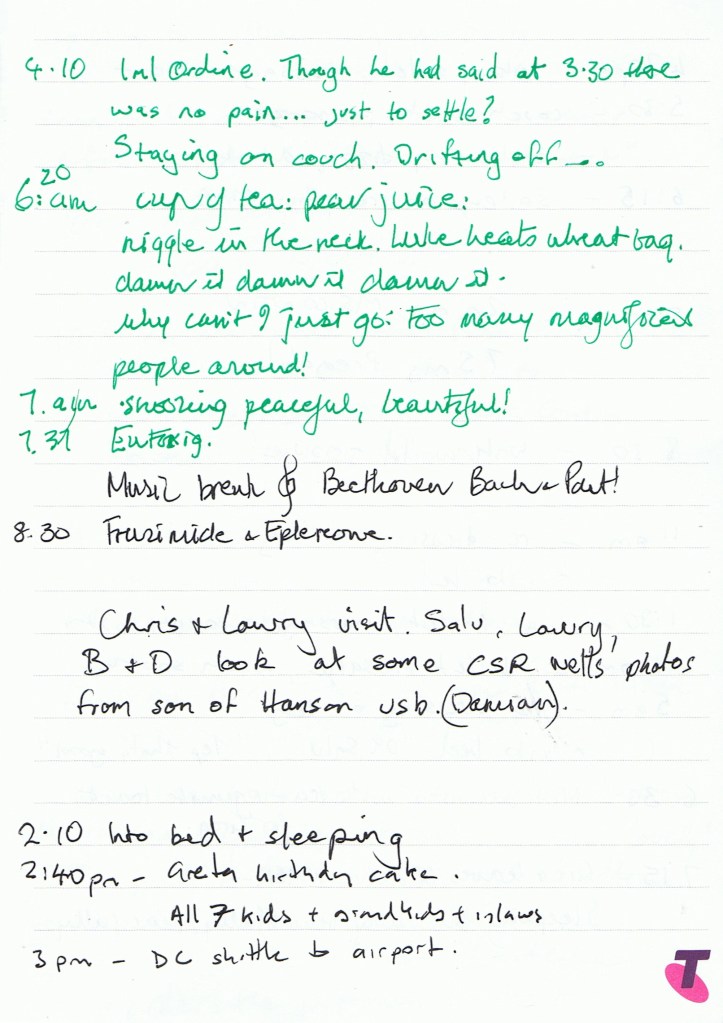 4.10 1ml Ordine. Though he had said at 3.30 there
was no pain... just to settle?
Staying on couch. Drifting off....
6:20 am cup of tea: pear juice:
niggle in the neck. Luke heats wheat bag.
damn it damn it damn it.
why can't I just go: too many magnificent
people around!
7. am snoozing peaceful, beautiful!
7.37
Music break Beethoven Bach & Part!
8.30 Frusimide & Eplerenone.
Chris & Lowry visit. Salv, Lowry,
B & D look at some CSR wells' photos
from son of Hanson usb. (Damian).
2.10 Into bed & sleeping
2:40pm - Greta birthday cake.
All 7 kids + grandkids + inlaws
3pm - DC shuttle to airport.
T